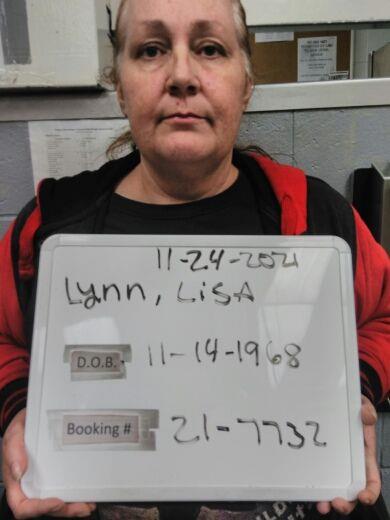 11-24-2021
Lynn, LiSA
D.O.B. 11-14-1968
Booking # 21-7732